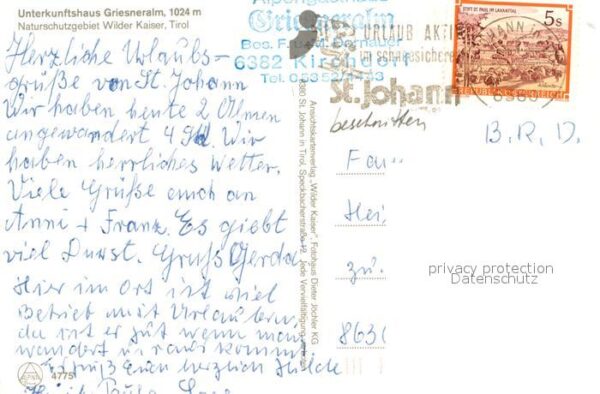 Unterkunftshaus Griesneralm, 1024 m
Naturschutzgebiet Wilder Kaiser, Tirol
Herzliche Urlaubs-
grüße von St. Johann
Wir haben heute 2 Almen
angewandert 4 Std. Wir
haben herrliches Wetter.
Viele Grüße auch an
Anni + Franz. Es giebt
viel Durst. Gruß Gerda
Hier im Ort ist viel
Betrieb mit Urlaubern
da ist er gut wenn man
wandert u. raus kommt
Es grüßt Euch herzlich Hilde
4775
Alpengasthaus
Griesneralm
Bes. F. u. M.
6382 Kirchdorf
Tel. 05352/
URLAUB AKTIV
im schneesicheren
St. Johann
STIFT ST. PAUL IM LAVANTTAL
5s
REPUBLIK ÖSTERREICH
Ansichtskartenverlag „Wilder Kaiser", Fotohaus Dieter Jöchler KG
6380 St. Johann in Tirol, Speckbacherstraße 12 Jede Vervielfältigung
B.R.D.
Fa
Hei
zu
8630
privacy protection
Datenschutz